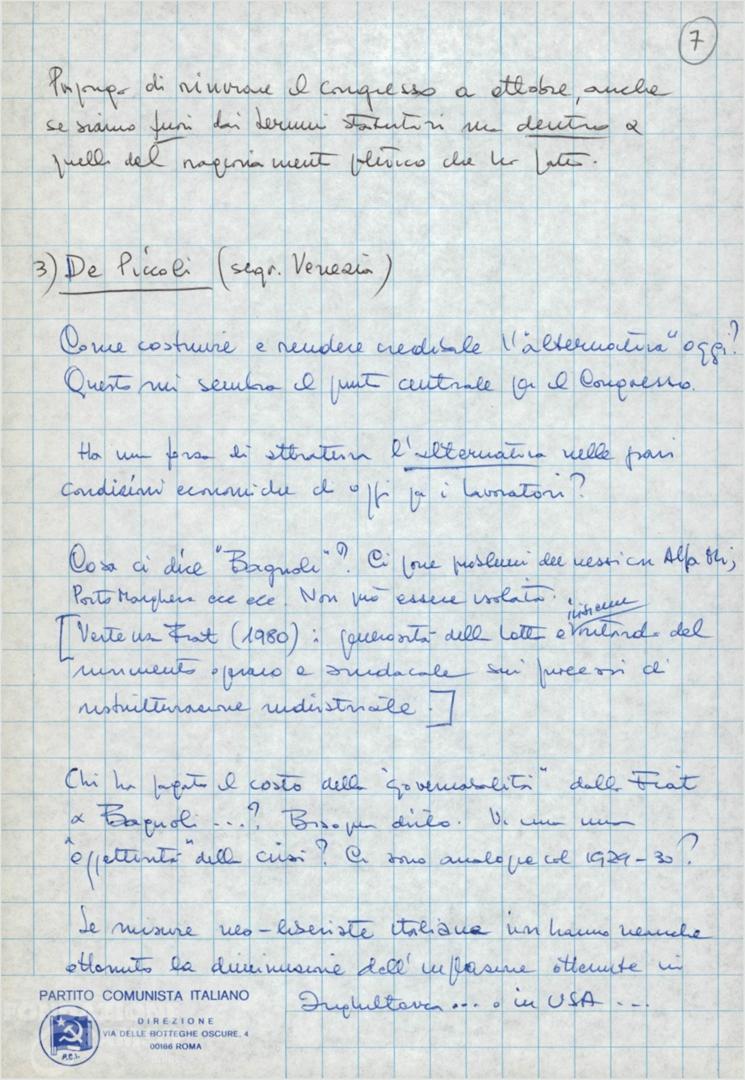 7
Propongo di rinviare il congresso a ottobre, anche
se siamo fuori dai termini statutari ma dentro a
quelli del ragionamento politico che ho fatto.
3) De Piccoli (segr. Venezia)
Come costruire e rendere credibile l'"alternativa" oggi?
Questo mi sembra il punto centrale per il Congresso.
Ha una forza di attrattiva l'alternativa nelle gravi
condizioni economiche di oggi per i lavoratori?
Cosa ci dice "Bagnoli"? Ci pone problemi dei nessi con Alfa
Porto Marghera ecc ecc. Non può essere isolata.
insieme
[Vertenza Fiat (1980): generosità della lotta e ritardo del
movimento operaio e sindacale sui processi di
ristrutturazione industriale.]
Chi ha pagato il costo della "governabilità" dalla Fiat
a Bagnoli ...? Bisogna dirlo. Vi una
"oggettività" della crisi? Ci sono analogie col 1929-30?
Le misure neo-liberiste italiane non hanno neanche
ottenuto la diminuzione dell'inflazione ottenuta in
Inghilterra ... o in USA ...
PARTITO COMUNISTA ITALIANO
DIREZIONE
VIA DELLE BOTTEGHE OSCURE, 4
00186 ROMA
P.C.I.